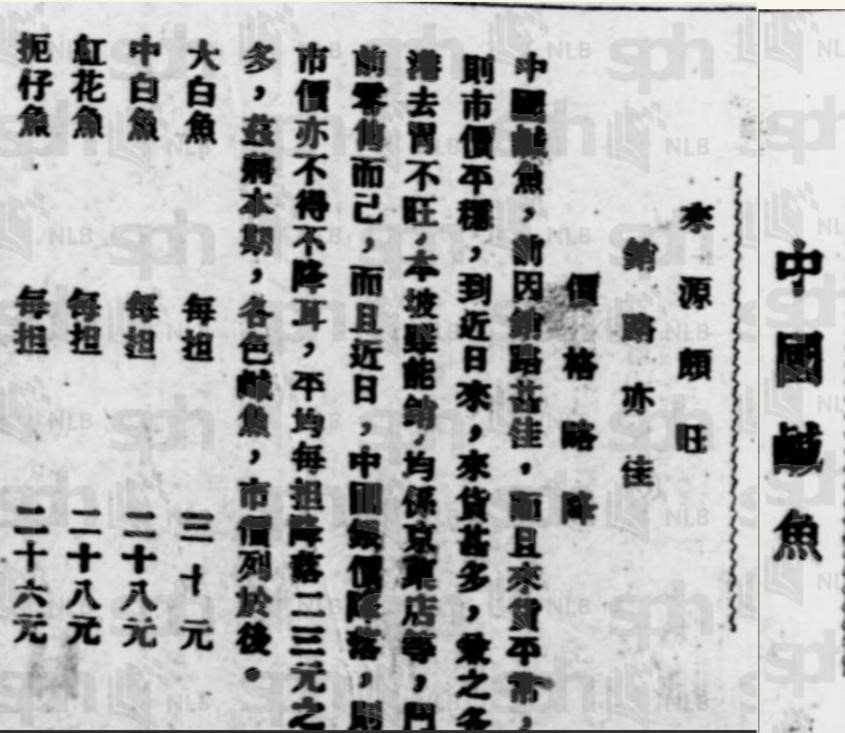 中國鹹魚
來源頗旺
銷路亦佳
價格略降
中國鹹魚，前因銷路甚佳，而且來貨平常，
則市價平穩，到近日來，來貨甚多，兼之各
港去胃不旺，本坡雖能銷，均係京菓店等，門
前零售而已，而且近日，中國銀價降落，則
市價亦不得不降耳，平均每担降落二三元之
多，茲將本期，各色鹹魚，市價列於後。
大白魚 每担 三十元
中白魚 每担 二十八元
紅花魚 每担 二十八元
扼仔魚 每担 二十六元